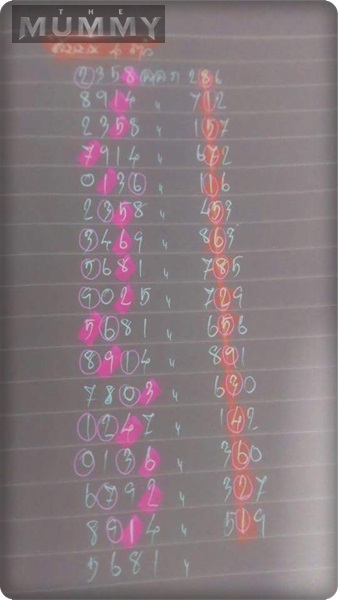 THE
MUMMY
2358 ออก 286
8914 " 712
2358 " 157
7914 " 672
0136 " 116
2358 " 453
3469 " 863
5681 " 785
9025 " 729
5681 " 656
8914 " 891
7803 " 630
1247 " 142
0136 " 360
6792 " 327
8914 " 519
5681 "